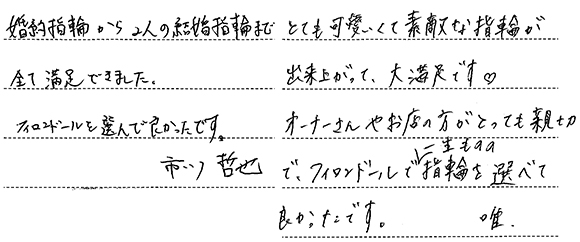 婚約指輪から2人の結婚指輪まで
全て満足できました。
フィロンドールを選んで良かったです。
哲也
とても可愛いくて素敵な指輪が
出来上がって、大満足です♡
オーナーさんやお店の方がとっても親切
で、フィロンドールで一生ものの指輪を選べて
良かったです。 唯.